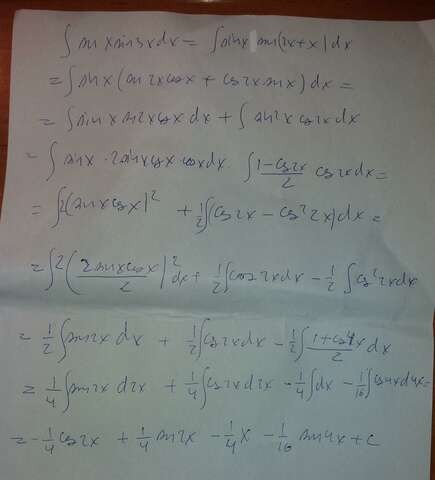 ∫ sin x sin 3x dx = ∫ sin x sin(2x + x) dx
= ∫ sin x (sin 2x cos x + cos 2x sin x) dx =
= ∫ sin x sin 2x cos x dx + ∫ sin² x cos 2x dx
= ∫ sin x · 2 sin x cos x cos x dx · ∫ (1 - cos 2x)/2 cos 2x dx =
= ∫ 2(sin x cos x)² + 1/2 ∫ (cos 2x - cos² 2x) dx =
= ∫ 2 ((2 sin x cos x)/2)² dx + 1/2 ∫ cos 2x dx - 1/2 ∫ cos² 2x dx
= 1/2 ∫ sin 2x dx + 1/2 ∫ cos 2x dx - 1/2 ∫ (1 + cos 4x)/2 dx
= 1/4 ∫ sin 2x d2x + 1/4 ∫ cos 2x d2x - 1/4 ∫ dx - 1/16 ∫ cos 4x d4x =
= -1/4 cos 2x + 1/4 sin 2x - 1/4 x - 1/16 sin 4x + c